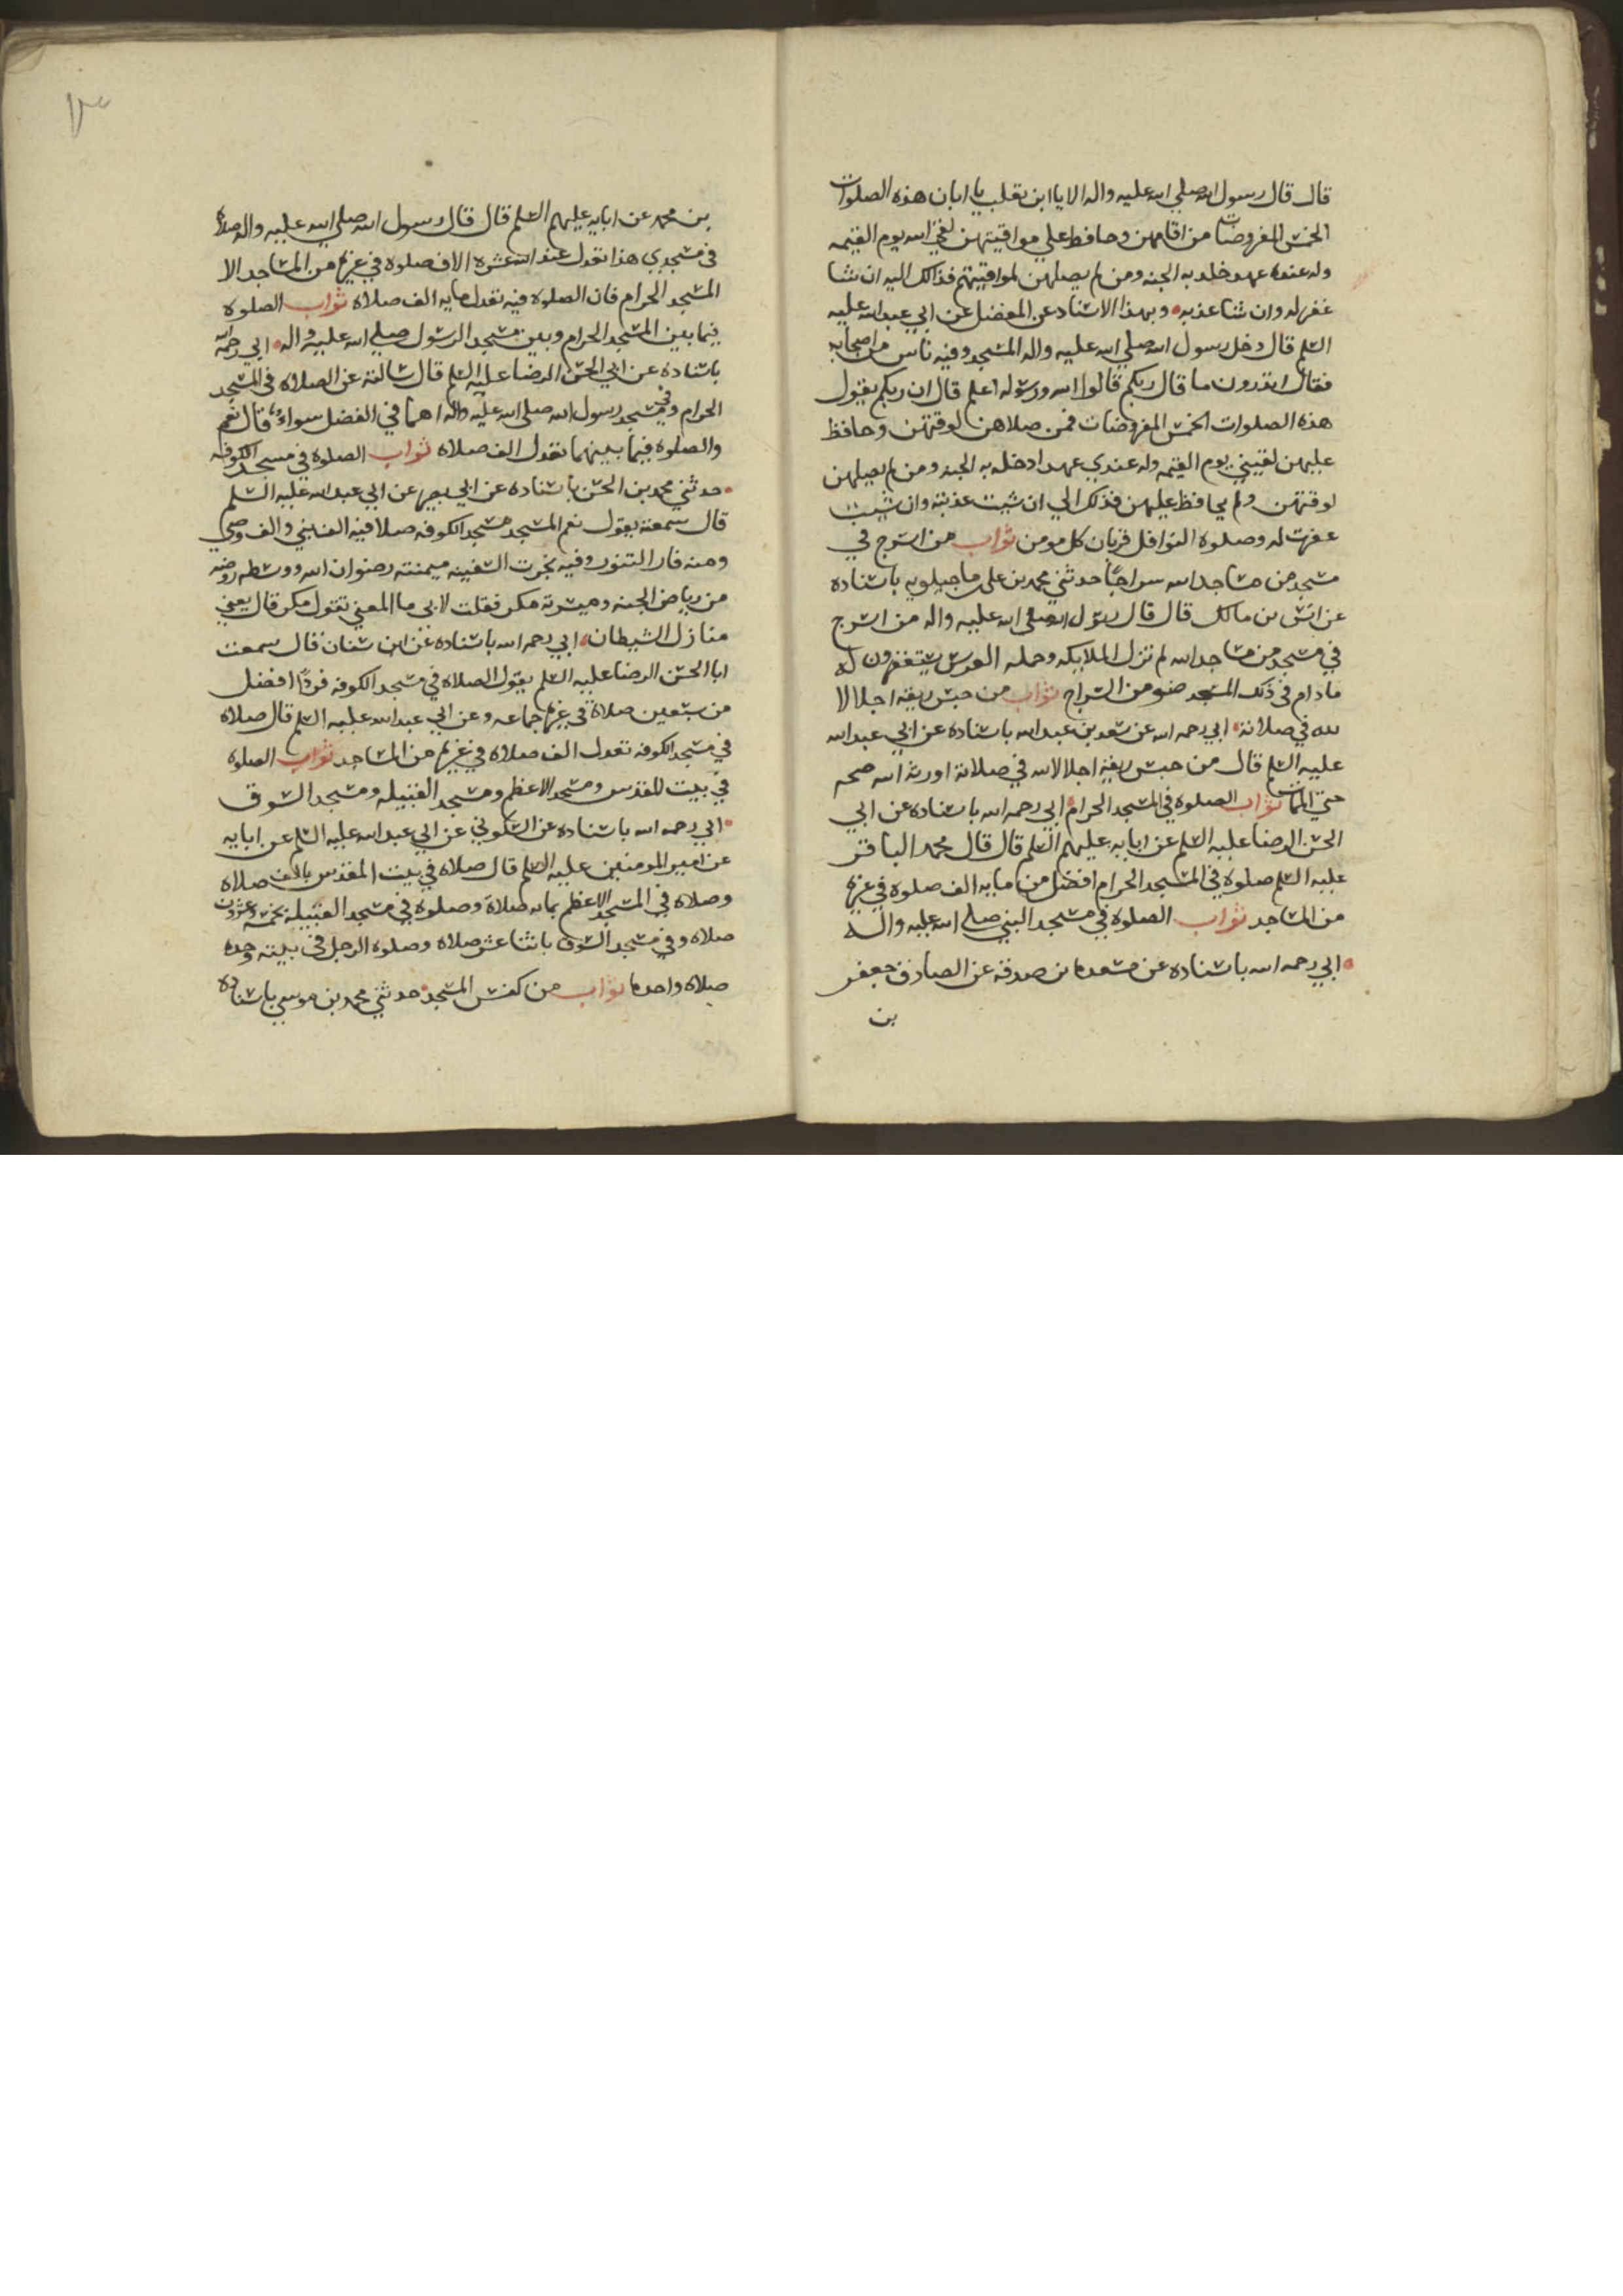 قال قال رسول الله صلي الله عليه واله الا يا ابن تغلب يا ابان هذه الصلوات
الخمس المفروضات من اقامهن وحافظ علي مواقيتهن لقي الله يوم القيمه
وله عنده عهد خلد به الجنه ومن لم يصلهن لمواقيتهم فذالك اليه ان شا
غفر له وان شا عذبه وبهذا الاسناد عن المفضل عن ابي عبد الله عليه
السلم قال دخل رسول الله صلي الله عليه واله المسجد وفيه ناس من اصحابه
فقال اتدرون ما قال ربكم قالوا الله ورسوله اعلم قال ان ربكم يقول
هذه الصلوات الخمس المفروضات فمن صلاهن لوقتهن وحافظ
عليهن لقيني يوم القيمه وله عندي عهد ادخله به الجنه ومن لم يصلهن
لوقتهن ولم يحافظ عليهن فذلك الي ان شيت عذبته وان شيت
غفرت له وصلوة النوافل قربان كل مومن ثواب من اسرج في
مسجد من مساجد الله سراجًا حدثني محمد بن علي ماجيلويه باسناده
عن انس بن مالك قال قال رسول الله صلى الله عليه واله من اسرج
في مسجد من مساجد الله لم تزل الملايكه وحمله العرش يستغفرون له
مادام في ذلك المسجد ضو من السراج ثواب من حبس ريقه اجلالا
لله في صلاته ابي رحمه الله عن سعد بن عبد الله باسناده عن ابي عبد الله
عليه السلم قال من حبس ريقه اجلالا لله في صلاته اورثه الله صحه
حتي الممات ثواب الصلوة في المسجد الحرام ابي رحمه الله باسناده عن ابي
الحسن الرضا عليه السلم عن ابايه عليهم السلم قال قال محمد الباقر
عليه السلم صلوة في المسجد الحرام افضل من مايه الف صلوة في غيره
من المساجد ثواب الصلوة في مسجد النبي صلي الله عليه واله
ابي رحمه الله باسناده عن مسعده بن صدقه عن الصادق جعفر
بن
بن محمد عن ابايه عليهم السلم قال قال رسول الله صلي الله عليه واله صلاة
في مسجدي هذا تعدل عند الله عشره الاف صلوة في غيره من المساجد الا
المسجد الحرام فان الصلوة فيه تعدل مايه الف صلاة ثواب الصلوة
فيما بين المسجد الحرام وبين مسجد الرسول صلي الله عليه واله ابي رحمه الله
باسناده عن ابي الحسن الرضا عليه السلم قال سالته عن الصلاة في المسجد
الحرام وفي مسجد رسول الله صلى الله عليه واله اهما في الفضل سواء قال نعم
والصلوة فيما بينهما تعدل الف صلاة ثواب الصلوة في مسجد الكوفه
حدثني محمد بن الحسن باسناده عن ابي بصير عن ابي عبد الله عليه السلم
قال سمعته يقول نعم المسجد مسجد الكوفه صلا فيه الف نبي والف وصي
ومنه فار التنور وفيه نجرت السفينه ميمنته رضوان الله ووسطه روضه
من رياض الجنه وميسرته مكر فقلت لابي ما المعني تقول مكر قال يعني
منازل الشيطان ابي رحمه الله باسناده عن ابن سنان قال سمعت
ابا الحسن الرضا عليه السلم يقول الصلاة في مسجد الكوفه فردًا افضل
من سبعين صلاة في غيره جماعه وعن ابي عبد الله عليه السلم قال صلاة
في مسجد الكوفه تعدل الف صلاة في غيره من المساجد ثواب الصلوة
في بيت المقدس ومسجد الاعظم ومسجد القبيله ومسجد السوق
ابي رحمه الله باسناده عن السكوني عن ابي عبد الله عليه السلم عن ابايه
عن امير المومنين عليه السلم قال صلاة في بيت المقدس بالف صلاة
وصلاة في المسجد الاعظم بمايه صلاة وصلوة في مسجد القبيله بخمسه وعشرون
صلاة وفي مسجد السوق باثنا عشر صلاة وصلوة الرجل في بيته وحده
صلاة واحده ثواب من كنس المسجد حدثني محمد بن موسي باسناده